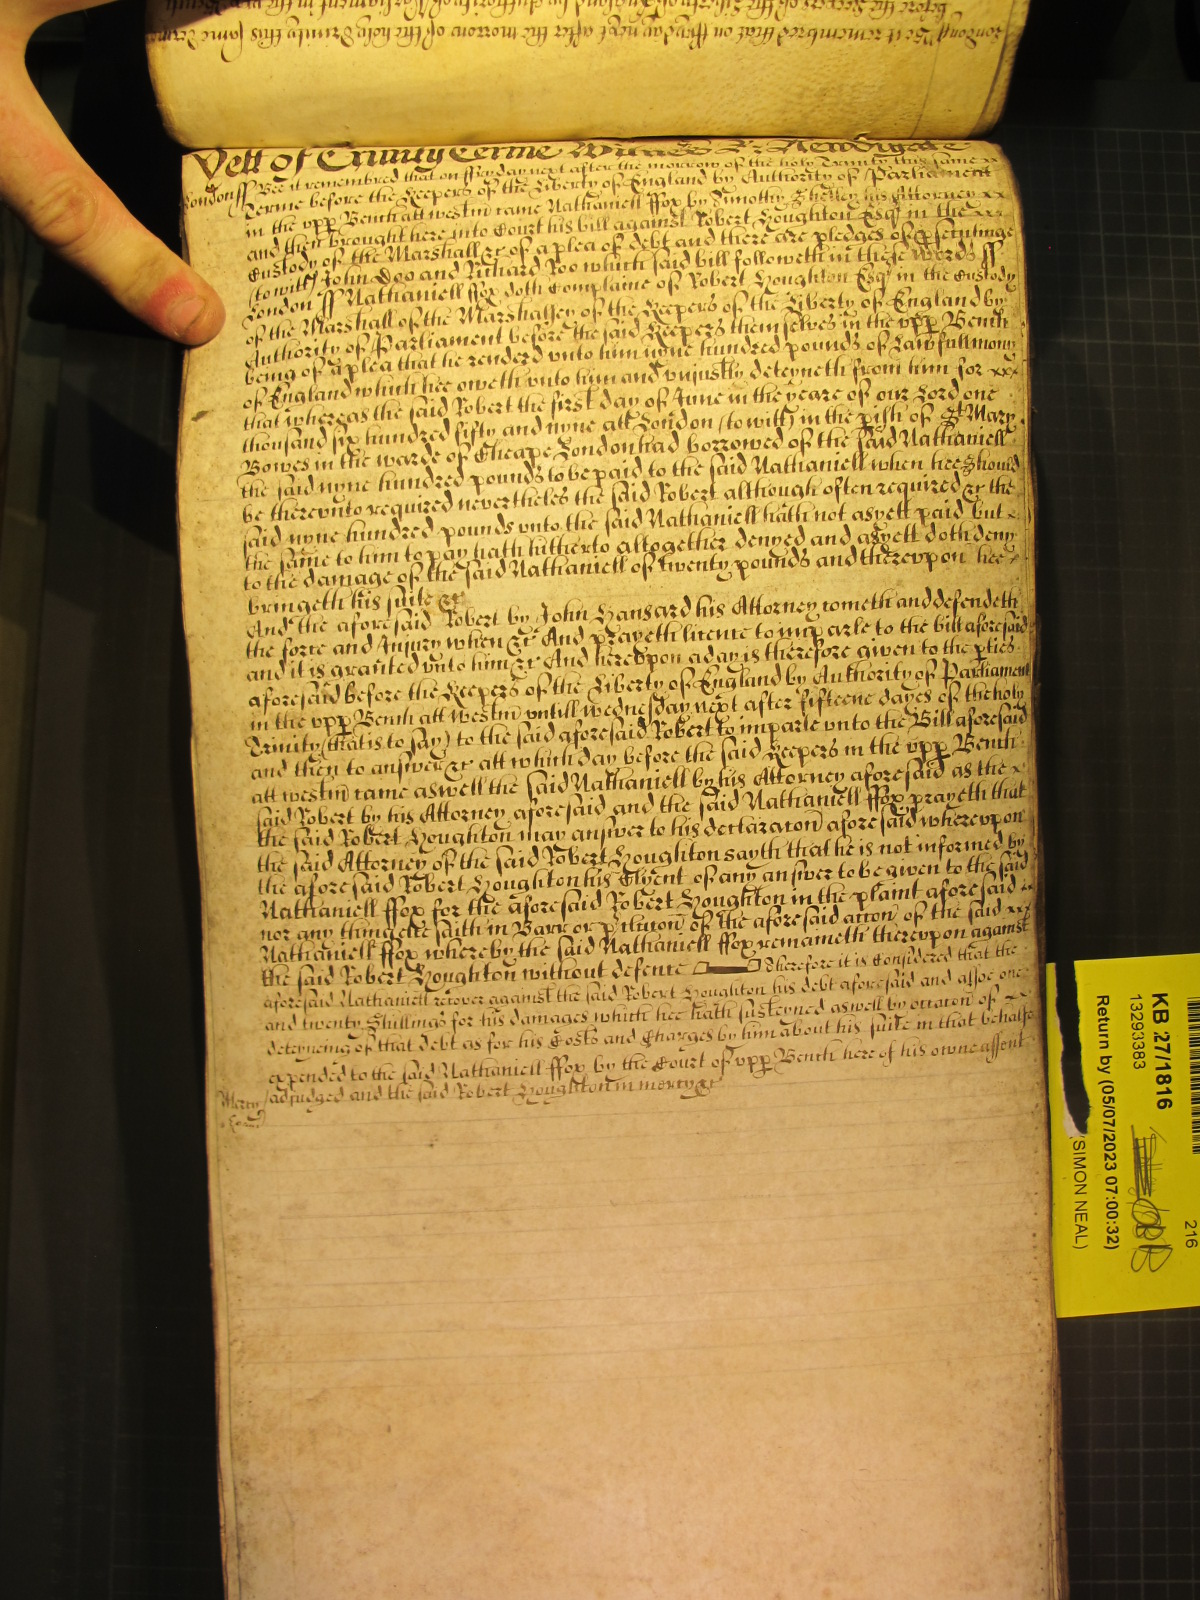 Yett of Trinity Terme Witnes R: Newdigate
London ss Bee it remembred that on ffryday next after the morrow of the holy Trinity this same xx
Terme before the Keepers of the Liberty of England by Authority of Parliament
in the vpp Bench att westm came Nathaniell ffox by Timothy Shelley his Attorney xx
and then brought here into Court his bill against Robert Houghton Esq in the xxx
Custody of the Marshall &c of a plea of debt and there are pledges of psecutinge
(to witt) John Doo and Richard Roo which said bill followeth in these words ss
London ss Nathaniell ffox doth Complaine of Robert Houghton Esq in the Custody
of the Marshall of the Marshalsey of the Keepers of the Liberty of England by
Authority of Parliament before the said Keepers themselves in the vpp Bench
being of a plea that he renderd vnto him nyne hundred pounds of Lawfull mony
of England which hee oweth vnto him and vnjustly deteyneth from him for xxx
that whereas the said Robert the first day of June in the yeare of our Lord one
thousand six hundred fifty and nyne att London (to witt) in the pish of St Mary
Bowes in the warde of Cheape London had borrowed of the said Nathaniell
the said nyne hundred pounds to be paid to the said Nathaniell when hee should
be therevnto required nevertheles the said Robert although often required &c the
said nyne hundred pounds vnto the said Nathaniell hath not as yett paid but x
the same to him to pay hath hitherto altogether denyed and as yett doth deny
to the damage of the said Nathaniell of twenty pounds and therevpon hee
bringeth his suite &c
And the aforesaid Robert by John Hansard his Attorney cometh and defendeth
the force and Injury when &c And prayeth licence to imparle to the bill aforesaid
and it is granted vnto him &c And herevpon a day is therefore given to the pties
aforesaid before the Keepers of the Liberty of England by Authority of Parliament
in the vpp Bench att westm vntill wednesday next after fifteene dayes of the holy
Trinity (that is to say) to the said aforesaid Robert to imparle vnto the Bill aforesaid
and then to answer &c att which day before the said Keepers in the vpp Bench
att westm came aswell the said Nathaniell by his Attorney aforesaid as the x
said Robert by his Attorney aforesaid and the said Nathaniell ffox prayeth that
the said Robert Houghton may answer to his declaracon aforesaid wherevpon
the said Attorney of the said Robert Houghton sayth that he is not informed by
the aforesaid Robert Houghton his Clyent of any answer to be given to the said
Nathaniell ffox for the aforesaid Robert Houghton in the plaint aforesaid
nor any thing else saith in Barr or pclucon of the aforesaid accon of the said xxx
Nathaniell ffox whereby the said Nathaniell ffox remaineth therevpon against
the said Robert Houghton without defence Therefore it is Considered that the
aforesaid Nathaniell recover against the said Robert Houghton his debt aforesaid and alsoe one
and twenty shillings for his damages which hee hath susteyned aswell by occacon of
deteyneing of that debt as for his Costs and Charges by him about his suite in that behalfe
expended to the said Nathaniell ffox by the Court of vpp Bench here of his owne assent
Mercy adjudged and the said Robert Houghton in mercy &c
KB 27/1816
13293383
Return by (05/07/2023 07:00:32)
(SIMON NEAL)
216